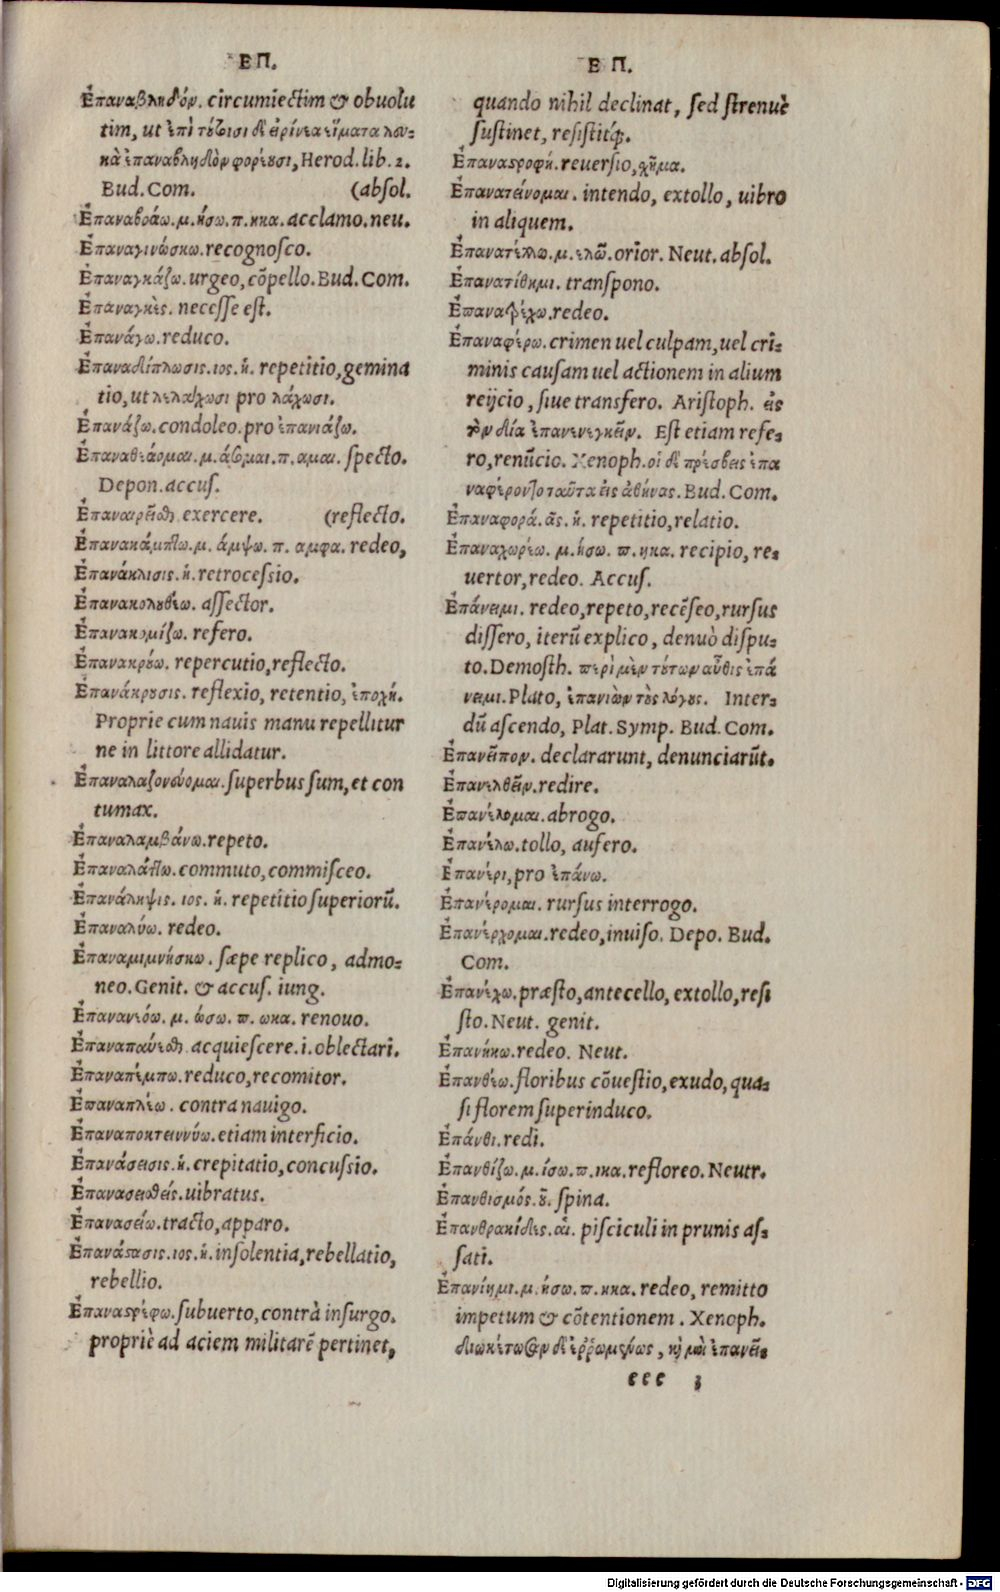 ΕΠ.
Ἐπαναβληδόν. circumiectim & obuolu
tim, ut ἐπὶ τούτοισι δὲ εἰρίνεα εἵματα λευ-
κὰ ἐπαναβληδὸν φορέουσι, Herod. lib. 2.
Bud. Com. (absol.
Ἐπαναβοάω. μ. ήσω. π. ηκα. acclamo. neu.
Ἐπαναγινώσκω. recognosco.
Ἐπαναγκάζω. urgeo, cōpello. Bud. Com.
Ἐπαναγκὲς. necesse est.
Ἐπανάγω. reduco.
Ἐπαναδίπλωσις. ιος. ἡ. repetitio, gemina
tio, ut λελαχωσι pro λάχωσι.
Ἐπανάζω. condoleo. pro ἐπανιάζω.
Ἐπαναθεάομαι. μ. άσομαι. π. αμαι. specto.
Depon. accus.
Ἐπαναιρεῖσθ exercere. (reflecto.
Ἐπανακάμπτω. μ. άμψω. π. αμφα. redeo,
Ἐπανάκλισις. ἡ. retrocessio.
Ἐπανακολουθέω. assector.
Ἐπανακομίζω. refero.
Ἐπανακρούω. repercutio, reflecto.
Ἐπανάκρουσις. reflexio, retentio, ἐποχή.
Proprie cum nauis manu repellitur
ne in littore allidatur.
Ἐπαναλαζονεύομαι. superbus sum, et con
tumax.
Ἐπαναλαμβάνω. repeto.
Ἐπαναλάττω. commuto, commisceo.
Ἐπανάληψις. ιος. ἡ. repetitio superiorū.
Ἐπαναλύω. redeo.
Ἐπαναμιμνήσκω. sæpe replico, admo-
neo. Genit. & accus. iung.
Ἐπανανεόω. μ. ώσω. π. ωκα. renouo.
Ἐπαναπαύεσθ acquiescere. i. oblectari.
Ἐπαναπέμπω. reduco, recomitor.
Ἐπαναπλέω. contra nauigo.
Ἐπαναποκτειννύω. etiam interficio.
Ἐπανάσεισις. ἡ. crepitatio, concussio.
Ἐπανασειθείς. uibratus.
Ἐπανασείω. tracto, apparo.
Ἐπανάστασις. ιος. ἡ. insolentia, rebellatio,
rebellio.
Ἐπαναστρέφω. subuerto, contrà insurgo.
propriè ad aciem militarē pertinet,
ΕΠ.
quando nihil declinat, sed strenuè
sustinet, resistitq́;.
Ἐπαναστροφή. reuersio, χῆμα.
Ἐπανατείνομαι. intendo, extollo, uibro
in aliquem.
Ἐπανατέλλω. μ. ελῶ. orior. Neut. absol.
Ἐπανατίθημι. transpono.
Ἐπανατρέχω. redeo.
Ἐπαναφέρω. crimen uel culpam, uel cri-
minis causam uel actionem in alium
reijcio, siue transfero. Aristoph. εἰς
τὸν δία ἐπανενεγκεῖν. Est etiam refe-
ro, renūcio. Xenoph. οἱ δὲ πρέσβεις ἐπα
ναφέροντο ταῦτα εἰς ἀθήνας. Bud. Com.
Ἐπαναφορά. ᾶς. ἡ. repetitio, relatio.
Ἐπαναχωρέω. μ. ήσω. π. ηκα. recipio, re-
uertor, redeo. Accus.
Ἐπάνειμι. redeo, repeto, recēseo, rursus
dissero, iterū explico, denuò dispu-
to. Demosth. περὶ μὲν τούτων αὖθις ἐπά
νειμι. Plato, ἐπανιὼν τοὺς λόγους. Inter-
dū ascendo, Plat. Symp. Bud. Com.
Ἐπανεῖπον. declararunt, denunciarūt.
Ἐπανελθεῖν. redire.
Ἐπανέλομαι. abrogo.
Ἐπανέλω. tollo, aufero.
Ἐπανέρι, pro ἐπάνω.
Ἐπανέρομαι. rursus interrogo.
Ἐπανέρχομαι. redeo, inuiso. Depo. Bud.
Com.
Ἐπανέχω. præsto, antecello, extollo, resi
sto. Neut. genit.
Ἐπανήκω. redeo. Neut.
Ἐπανθέω. floribus cōuestio, exudo, qua-
si florem superinduco.
Ἐπάνθι. redi.
Ἐπανθίζω. μ. ίσω. π. ικα. refloreo. Neutr.
Ἐπανθισμός. οῦ. spina.
Ἐπανθρακίδες. αἱ. pisciculi in prunis as-
sati.
Ἐπανίημι. μ. ήσω. π. ηκα. redeo, remitto
impetum & cōtentionem. Xenoph.
διωκέτωσαν δὲ ἐῤῥωμένως, καὶ μὴ ἐπανεῖ-
eee 3
Digitalisierung gefördert durch die Deutsche Forschungsgemeinschaft - DFG